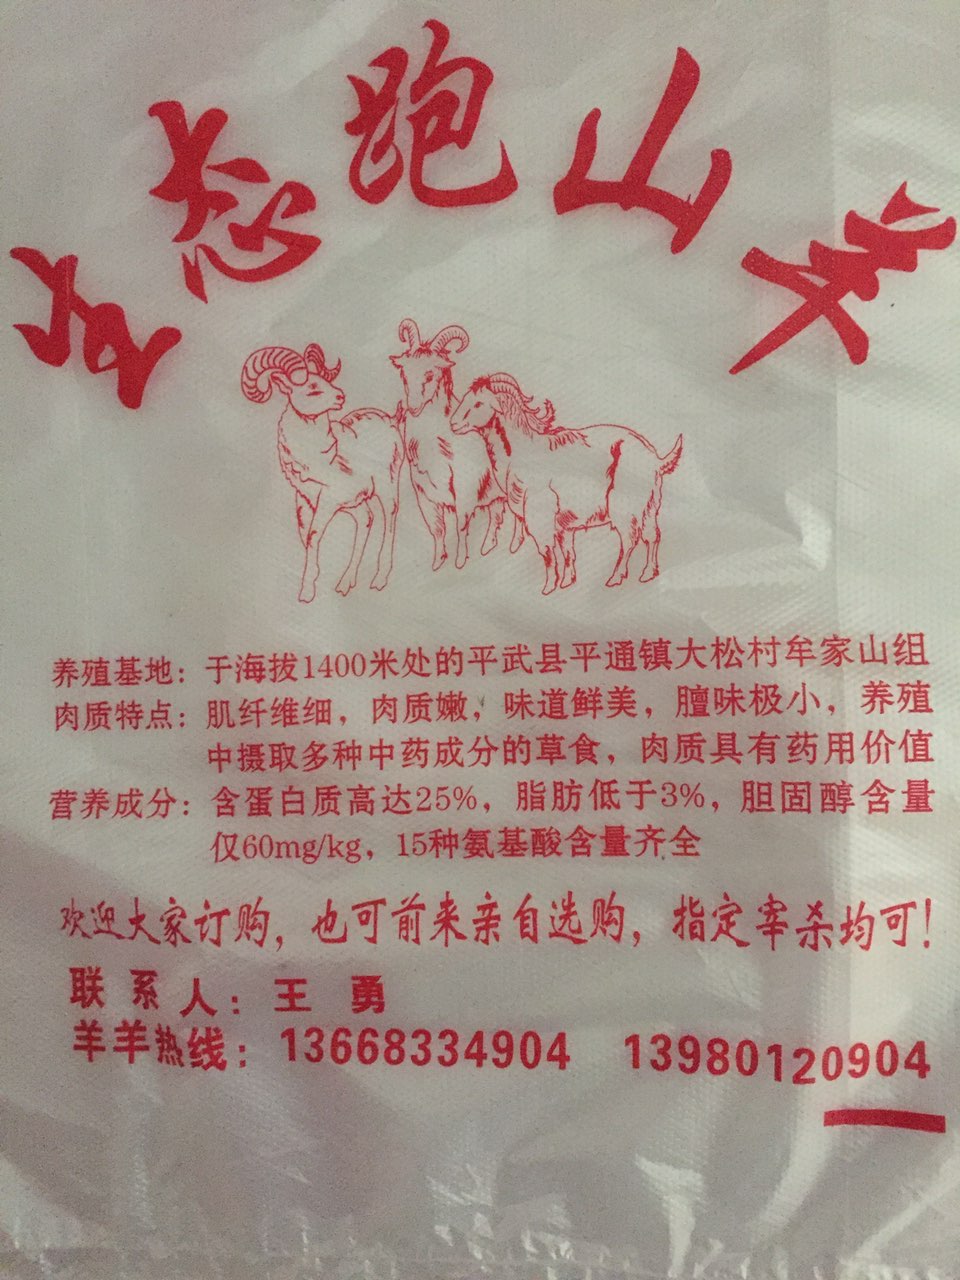 生态跑山羊
养殖基地：于海拔1400米处的平武县平通镇大松村牟家山组
肉质特点：肌纤维细，肉质嫩，味道鲜美，膻味极小，养殖
中摄取多种中药成分的草食，肉质具有药用价值
营养成分：含蛋白质高达25%，脂肪低于3%，胆固醇含量
仅60mg/kg，15种氨基酸含量齐全
欢迎大家订购，也可前来亲自选购，指定宰杀均可！
联系人：王勇
羊羊热线：13668334904 13980120904